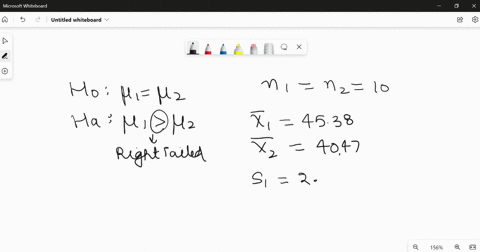 Microsoft Whiteboard
Untitled whiteboard
Ho: μ1 = μ2
Ha: μ1 > μ2
Right Tailed
n1 = n2 = 10
x̅1 = 45.38
x̅2 = 40.47
S1 = 2.
156%